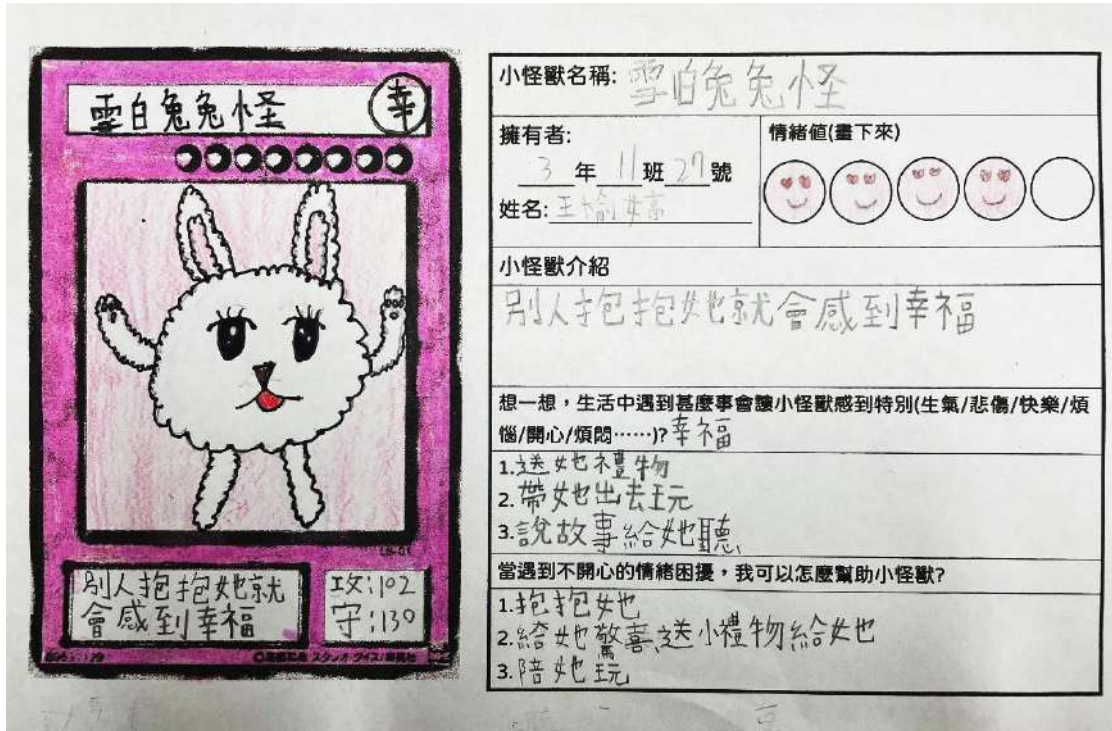 雪白兔兔怪
幸
別人抱抱她就
會感到幸福
攻:102
守:130
小怪獸名稱: 雪白兔兔怪
擁有者:
3 年 11 班 27 號
姓名: 王愉婷
情緒值(畫下來)
小怪獸介紹
別人抱抱她就會感到幸福
想一想,生活中遇到甚麼事會讓小怪獸感到特別(生氣/悲傷/快樂/煩
惱/開心/煩悶……)? 幸福
1.送她禮物
2.帶她出去玩
3.說故事給她聽
當遇到不開心的情緒困擾,我可以怎麼幫助小怪獸?
1.抱抱她
2.給她驚喜、送小禮物給她
3.陪她玩